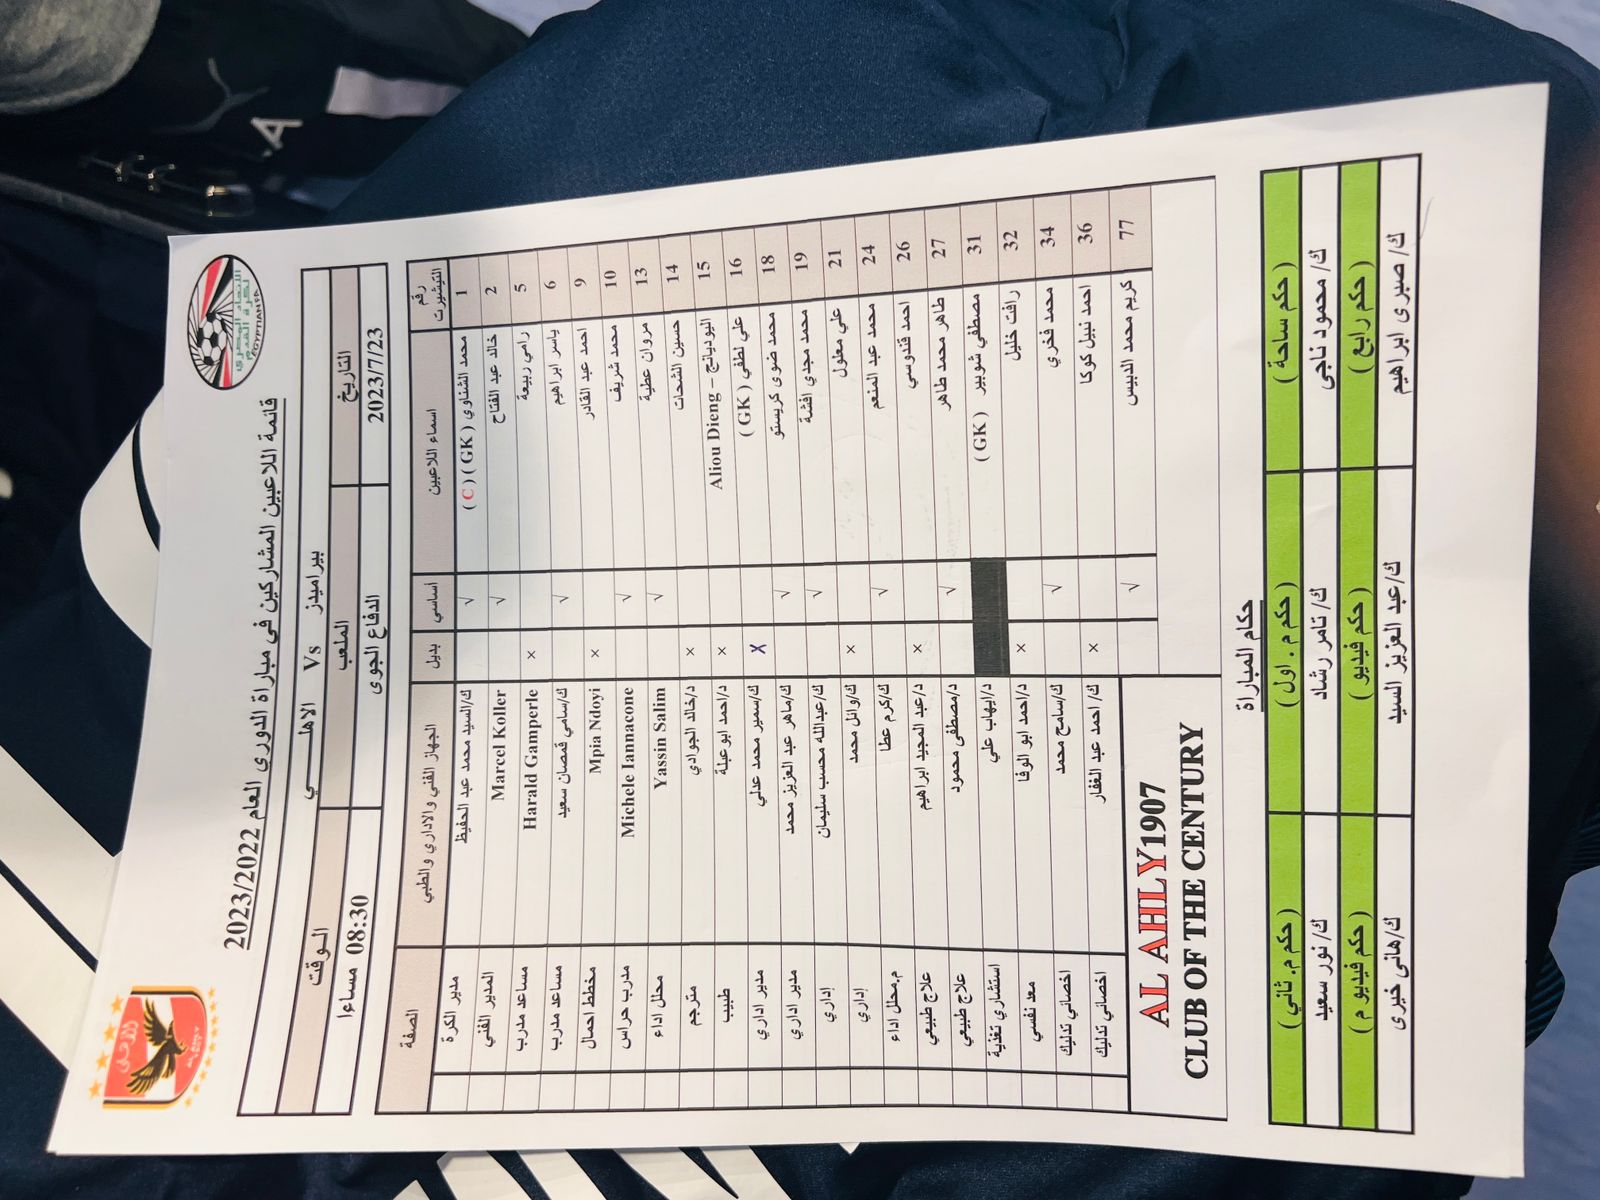 الاتحاد المصرى
لكرة القدم
EGYPTIAN FA
قائمة اللاعبين المشاركين في مباراة الدوري العام 2023/2022
بيراميدز Vs الاهلـــــي
التاريخ الملعب الـوقت
2023/7/23 الدفاع الجوى 08:30 مساءا
رقم التيشيرت اسماء اللاعبين أساسي بديل الجهاز الفني والاداري والطبي الصفة
1 محمد الشناوي ( GK ) ( C ) √ ك/السيد محمد عبد الحفيظ مدير الكرة
2 خالد عبد الفتاح √ Marcel Koller المدير الفني
5 رامي ربيعة × Harald Gamperle مساعد مدرب
6 ياسر ابراهيم √ ك/سامي قمصان سعيد مساعد مدرب
9 احمد عبد القادر × Mpia Ndoyi مخطط احمال
10 محمد شريف √ Michele Iannacone مدرب حراس
13 مروان عطية √ Yassin Salim محلل اداء
14 حسين الشحات × د/خالد الجوادي مترجم
15 اليو ديانج – Aliou Dieng × د/احمد ابو عبلة طبيب
16 علي لطفي ( GK ) X ك/سمير محمد عدلي مدير اداري
18 محمد ضوى كريستو √ ك/ماهر عبد العزيز محمد مدير اداري
19 محمد مجدي افشة √ ك/عبدالله محسب سليمان إداري
21 علي معلول × ك/وائل محمد إداري
24 محمد عبد المنعم √ ك/كرم عطا م.محلل اداء
26 احمد قندوسي × د/عبد المجيد ابراهيم علاج طبيعي
27 طاهر محمد طاهر √ د/مصطفى محمود علاج طبيعي
31 مصطفي شوبير ( GK ) د/إيهاب علي استشاري تغذية
32 رافت خليل × د/احمد ابو الوفا معد نفسي
34 محمد فخري √ ك/سامح محمد اخصائي تدليك
36 احمد نبيل كوكا × ك/ احمد عبد الغفار اخصائي تدليك
77 كريم محمد الدبيس √
AL AHLY1907
CLUB OF THE CENTURY
حكام المباراة
( حكم ساحة ) ( حكم م . اول ) ( حكم م. ثاني )
ك/ محمود ناجى ك/ تامر رشاد ك/ نور سعيد
( حكم رابع ) ( حكم فيديو ) ( حكم فيديو م )
ك/ صبرى ابراهيم ك/عبد العزيز السيد ك/هانى خيرى